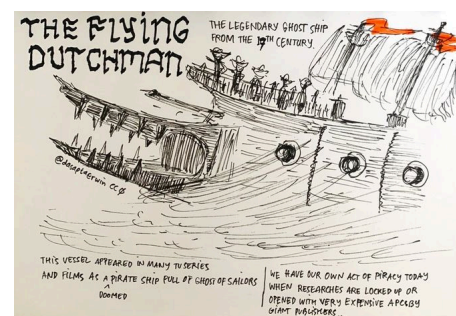 THE FLYING
DUTCHMAN
THE LEGENDARY GHOST SHIP
FROM THE 17TH CENTURY.
@dasaptaerwin CC0
THIS VESSEL APPEARED IN MANY TV SERIES
AND FILMS AS A PIRATE SHIP FULL OF GHOST OF SAILORS
DOOMED
WE HAVE OUR OWN ACT OF PIRACY TODAY
WHEN RESEARCHES ARE LOCKED UP OR
OPENED WITH VERY EXPENSIVE APCS BY
GIANT PUBLISHERS..